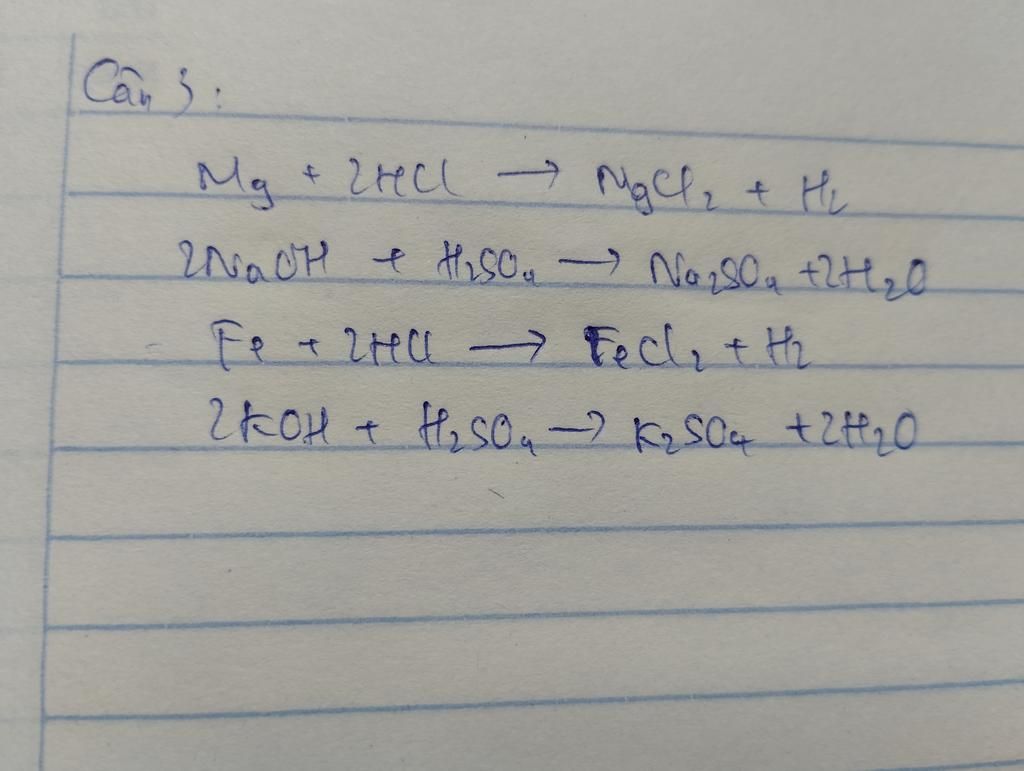 Câu 3:
Mg + 2HCl → MgCl₂ + H₂
2NaOH + H₂SO₄ → Na₂SO₄ + 2H₂O
Fe + 2HCl → FeCl₂ + H₂
2KOH + H₂SO₄ → K₂SO₄ + 2H₂O